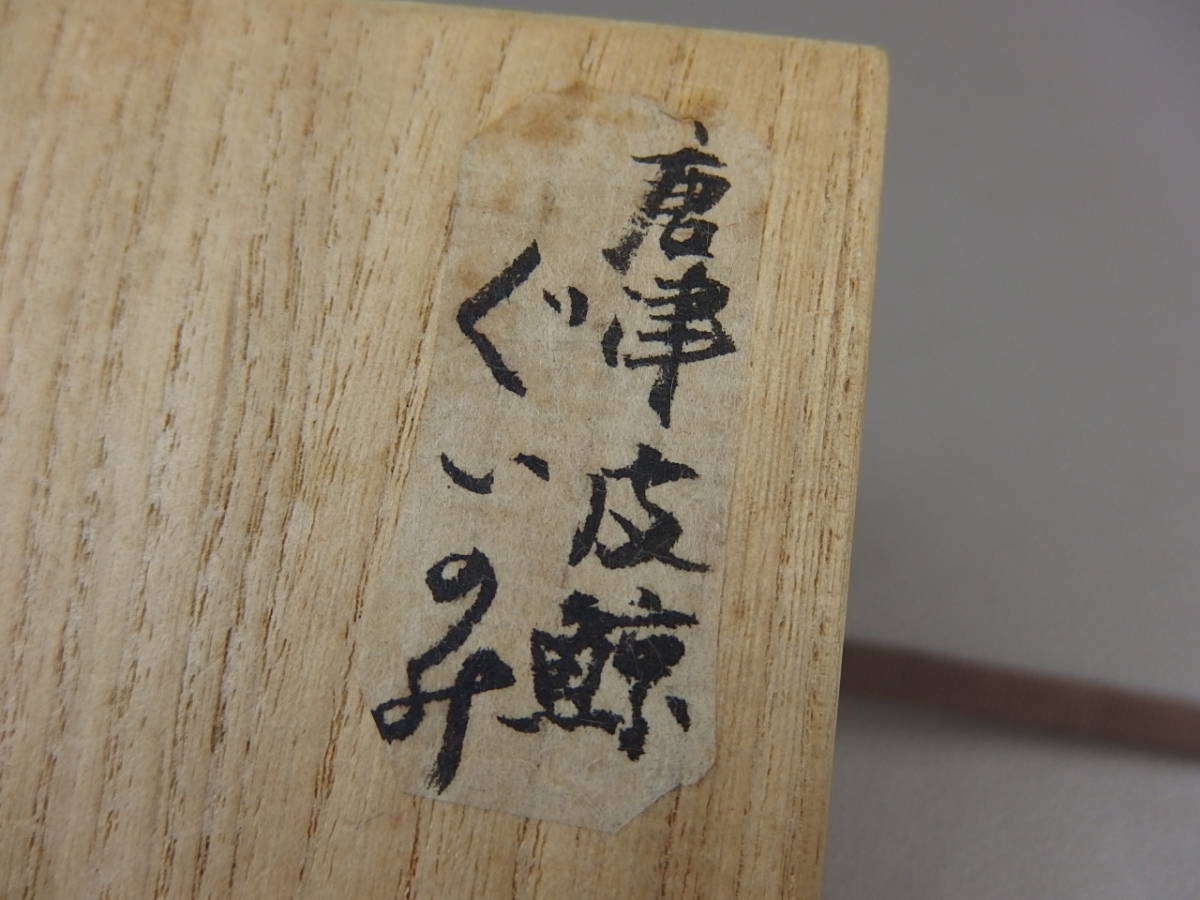 唐津皮鯨
ぐいのみ